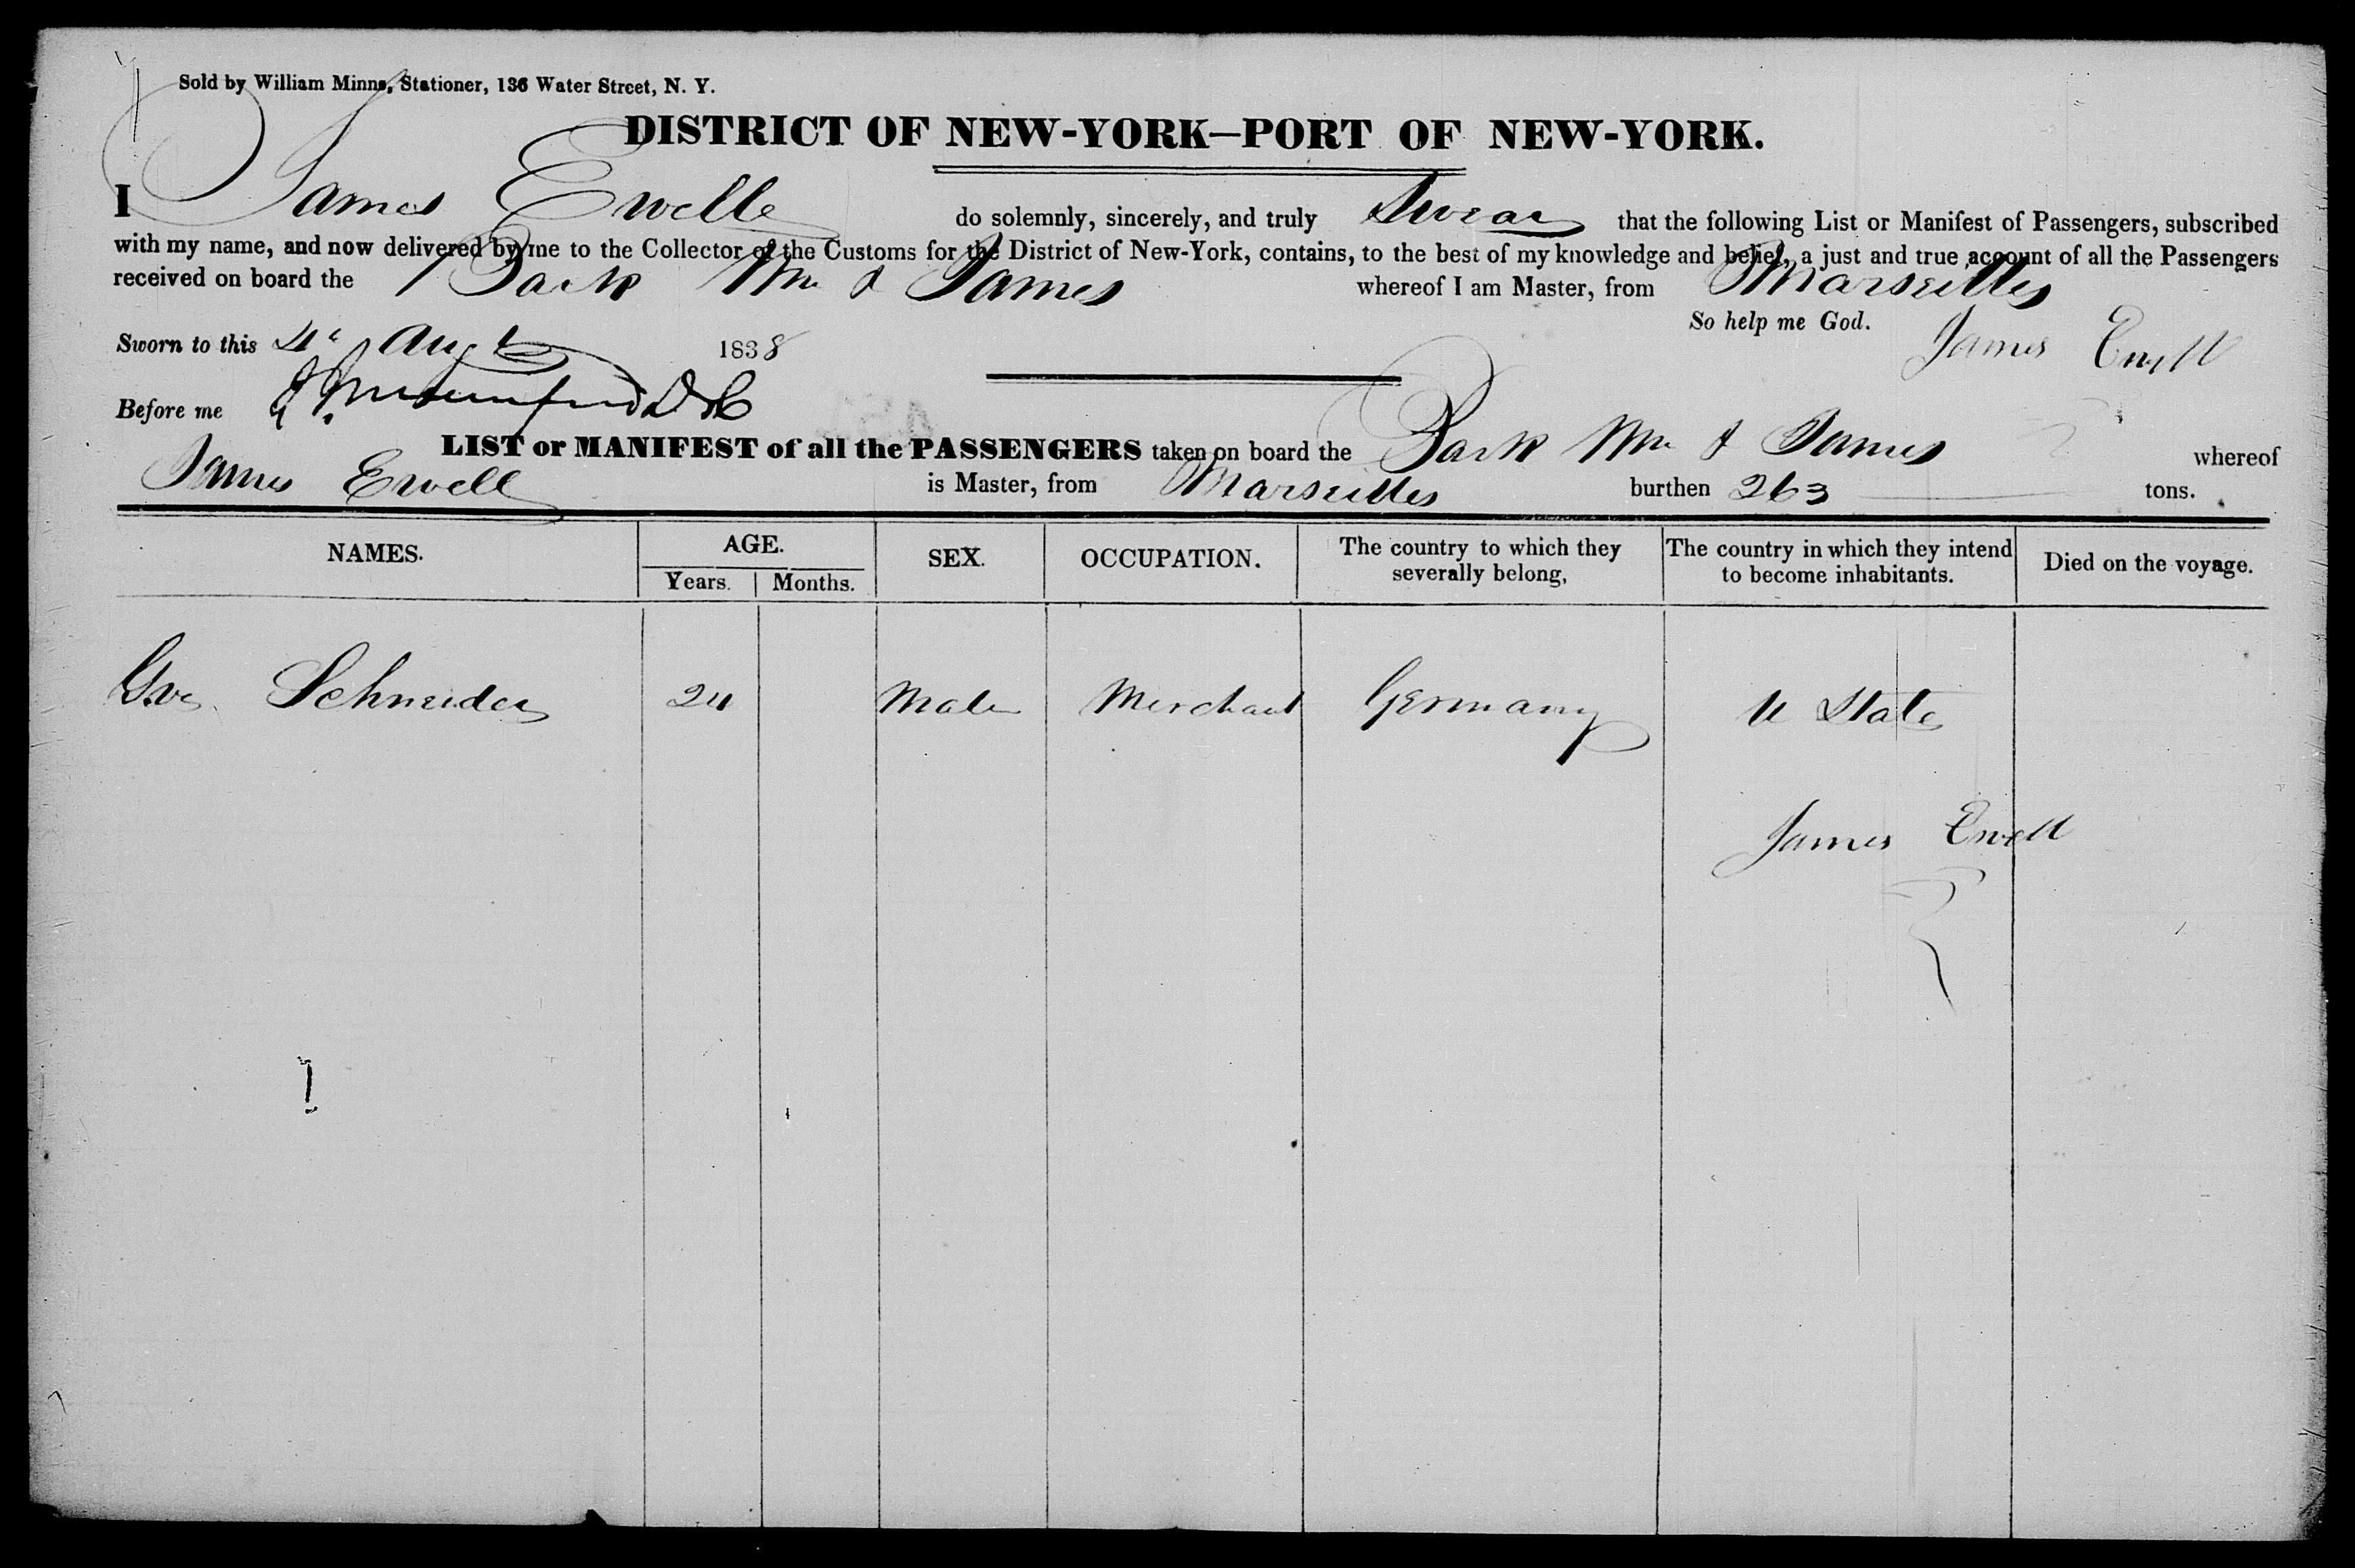 Sold by William Minns, Stationer, 136 Water Street, N. Y.
DISTRICT OF NEW-YORK—PORT OF NEW-YORK.
I James Ewelle do solemnly, sincerely, and truly Swear that the following List or Manifest of Passengers, subscribed
with my name, and now delivered by me to the Collector of the Customs for the District of New-York, contains, to the best of my knowledge and belief, a just and true account of all the Passengers
received on board the Bark Wm & James whereof I am Master, from Marseilles
So help me God. James Ewell
Sworn to this 4 Augt 1838
Before me
LIST or MANIFEST of all the PASSENGERS taken on board the Bark Wm & James whereof
James Ewell is Master, from Marseilles burthen 263 tons.
NAMES. AGE. Years. Months. SEX. OCCUPATION. The country to which they severally belong, The country in which they intend to become inhabitants. Died on the voyage.
Schneider 24 Male Merchant Germany U State
James Ewell